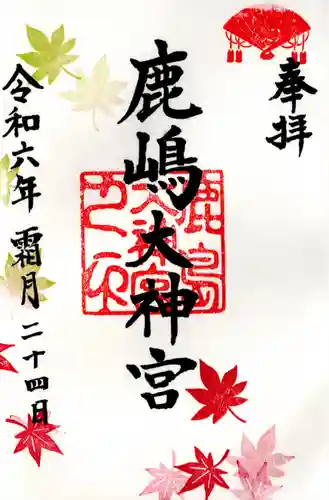 奉拝
鹿嶋大神宮
令和六年 霜月 二十四日